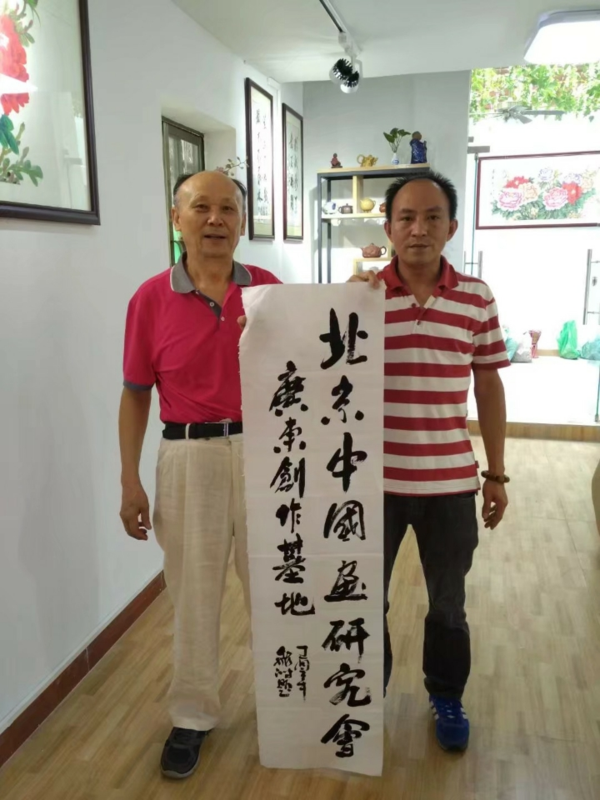 北京中國画研究會
廣東創作基地
丁酉